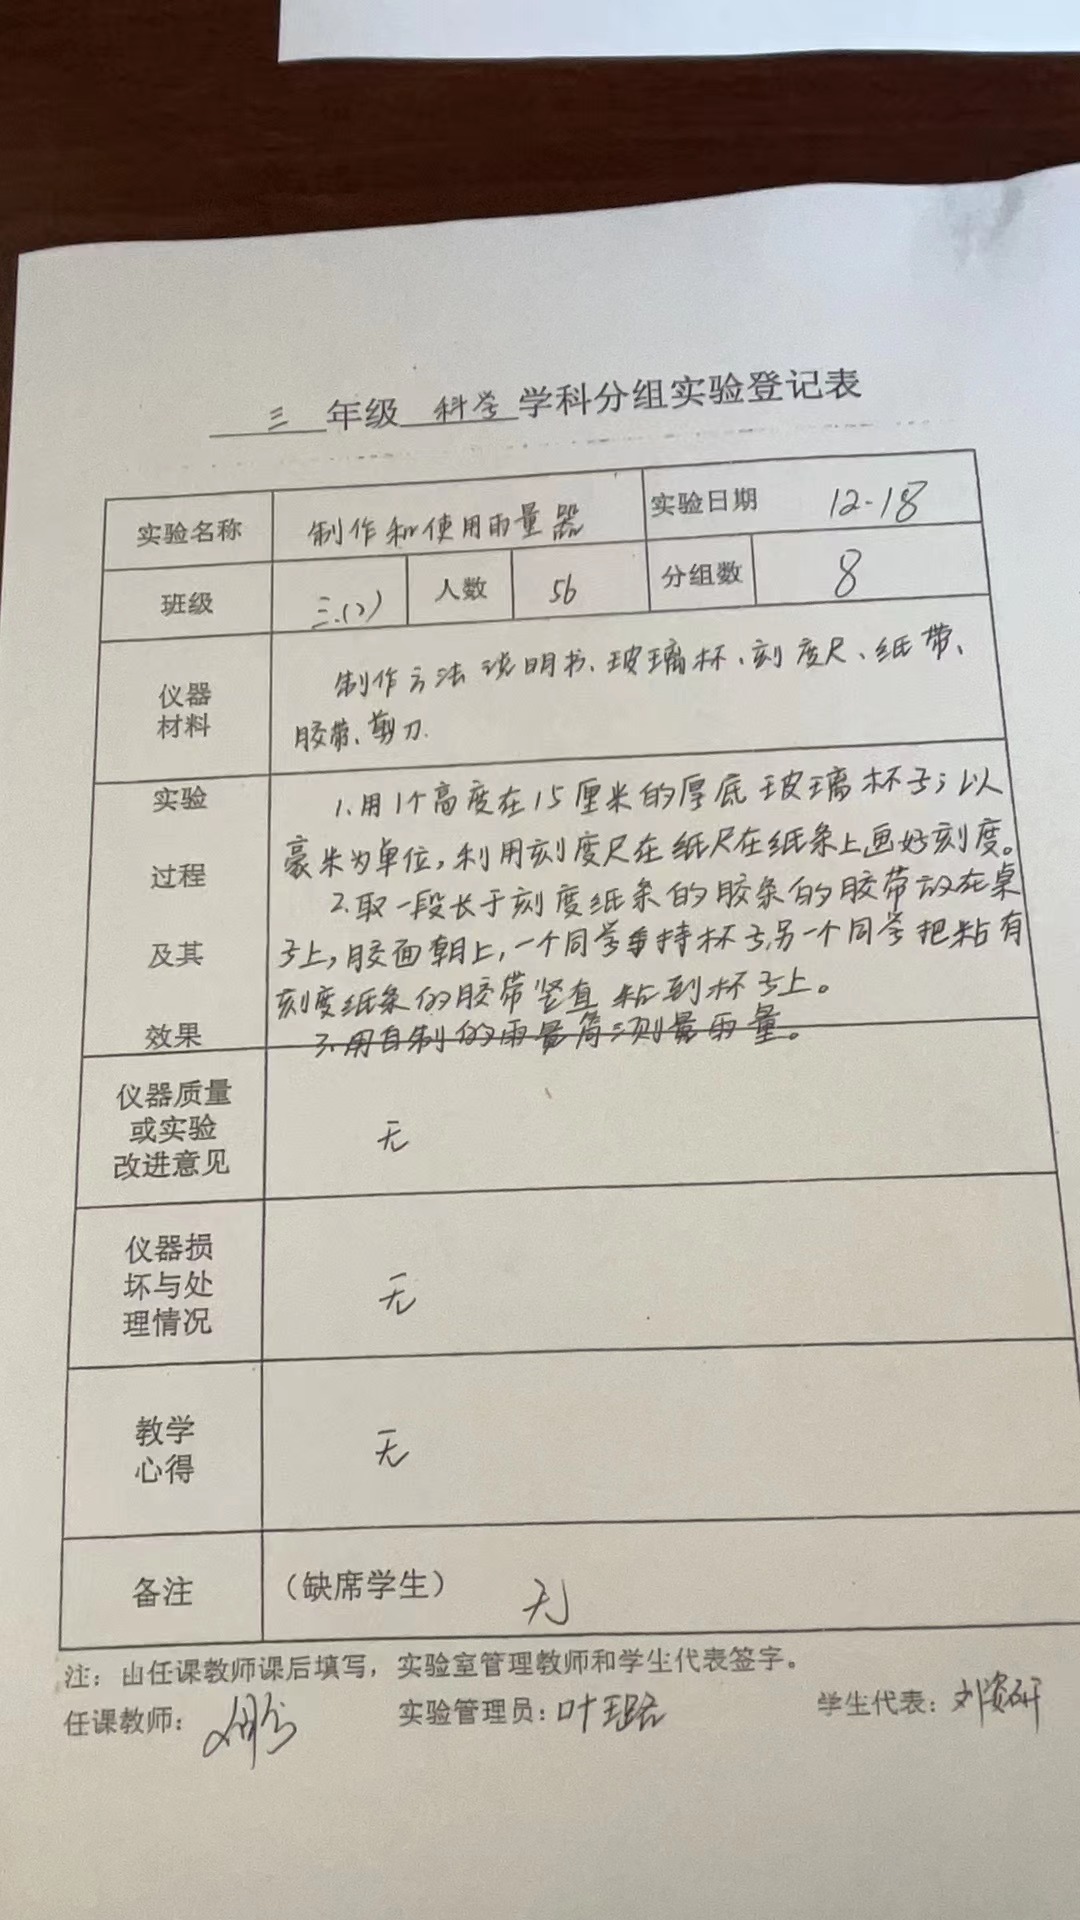 三 年级 科学 学科分组实验登记表
实验名称 制作和使用雨量器 实验日期 12-18
班级 三.(2) 人数 56 分组数 8
仪器
材料
制作方法说明书、玻璃杯、刻度尺、纸带、
胶带、剪刀.
实验
过程
及其
效果
1.用1个高度在15厘米的厚底玻璃杯子;以
豪米为单位,利用刻度尺在纸尺在纸条上画好刻度。
2.取一段长于刻度纸条的胶条的胶带放在桌
子上,胶面朝上,一个同学手持杯子,另一个同学把粘有
刻度纸条的胶带竖直粘到杯子上。
3.用自制的雨量筒测量雨量。
仪器质量
或实验
改进意见
无
仪器损
坏与处
理情况
无
教学
心得
无
备注 (缺席学生) 无
注:由任课教师课后填写,实验室管理教师和学生代表签字。
任课教师: 实验管理员:叶 学生代表:刘